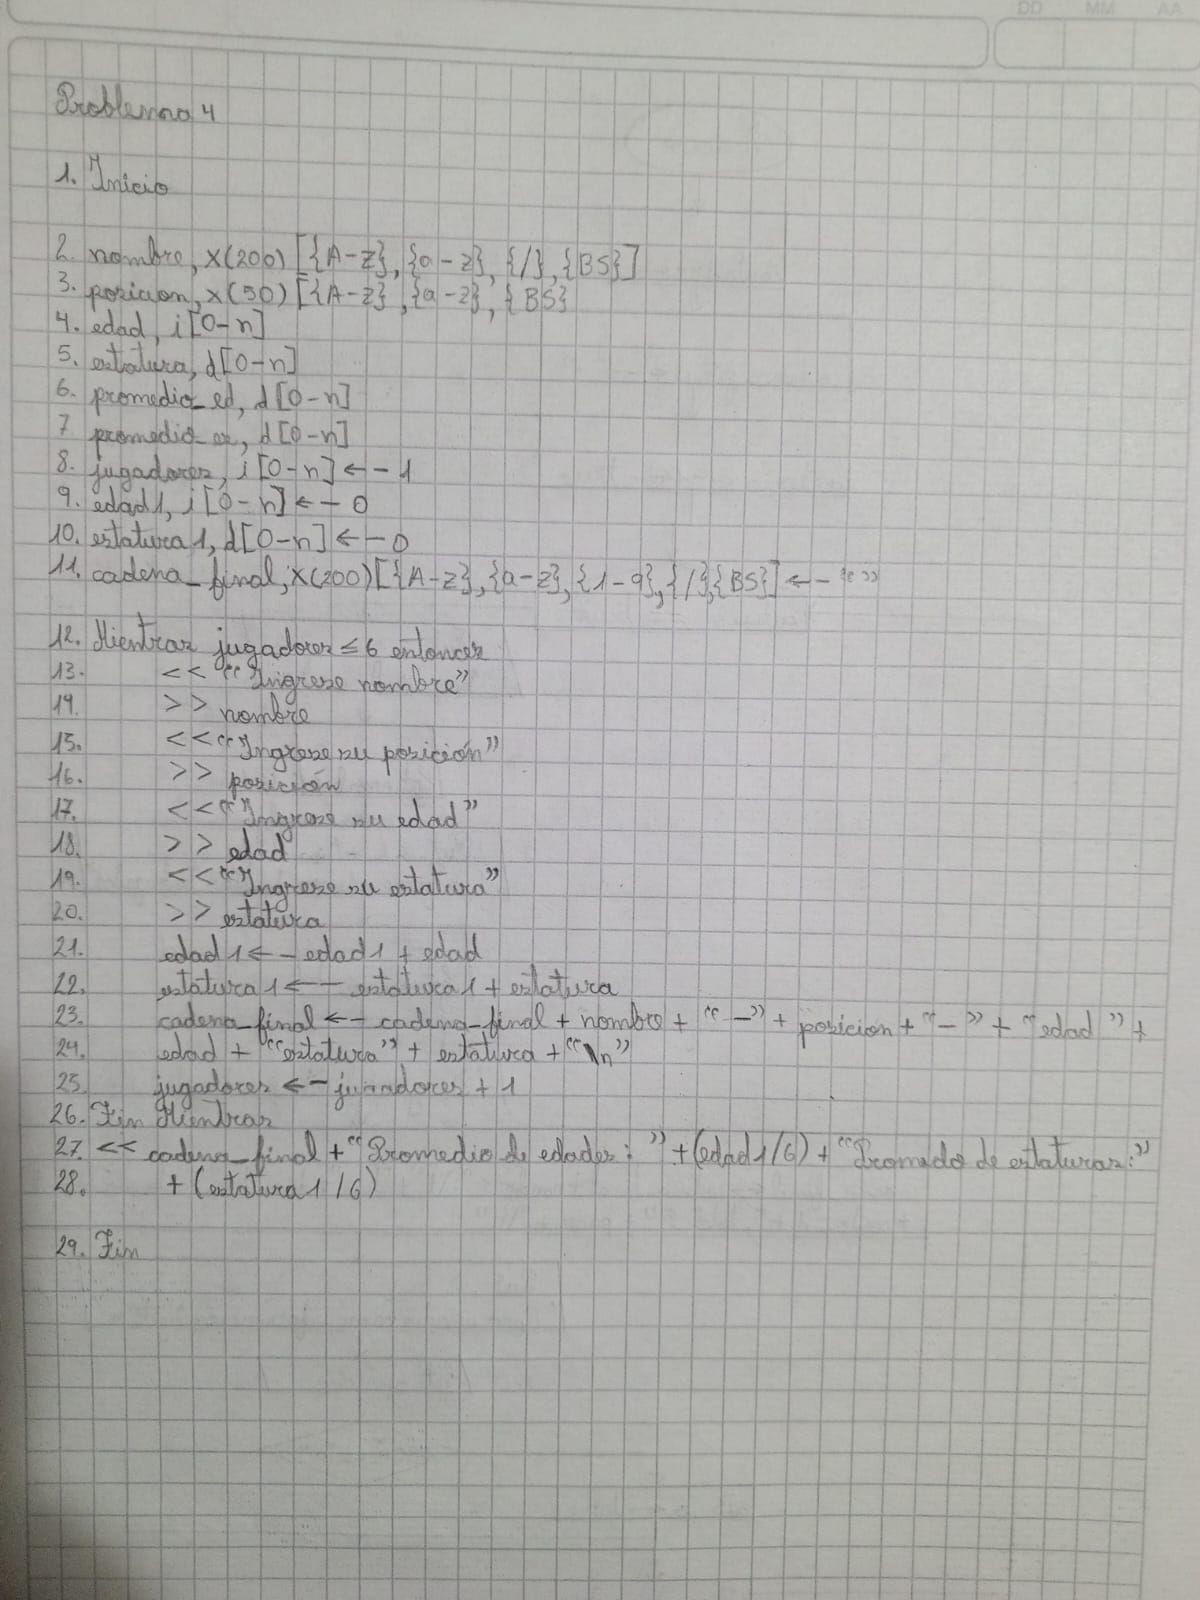 DD MM AA
Problema 4
1. Inicio
2. nombre, X(200) [{A-Z}, {a-z}, {/}, {BS}]
3. posicion, X(50) [{A-Z}, {a-z}, {BS}
4. edad, i[0-n]
5. estatura, d[0-n]
6. promedio_ed, d[0-n]
7 promedio_es, d[0-n]
8. jugadores, i[0-n] <-- 1
9. edad1, i[0-n] <-- 0
10. estatura1, d[0-n] <-- 0
11. cadena_final, X(200)[{A-Z},{a-z},{1-9},{/},{BS}] <-- “”
12. Mientras jugadores ≤ 6 entonces
13. << “Ingrese nombre”
14. >> nombre
15. << “Ingrese su posición”
16. >> posición
17. << “Ingrese su edad”
18. >> edad
19. << “Ingrese su estatura”
20. >> estatura
21. edad1 <- edad1 + edad
22. estatura1 <-- estatura1 + estatura
23. cadena_final <-- cadena_final + nombre + “-” + posicion + “-” + “edad” +
24. edad + “estatura” + estatura + “\n”
25. jugadores <-- jugadores + 1
26. Fin Mientras
27. << cadena_final + “Promedio de edades: ” + (edad1/6) + “Promedo de estaturas:”
28. + (estatura1/6)
29. Fin